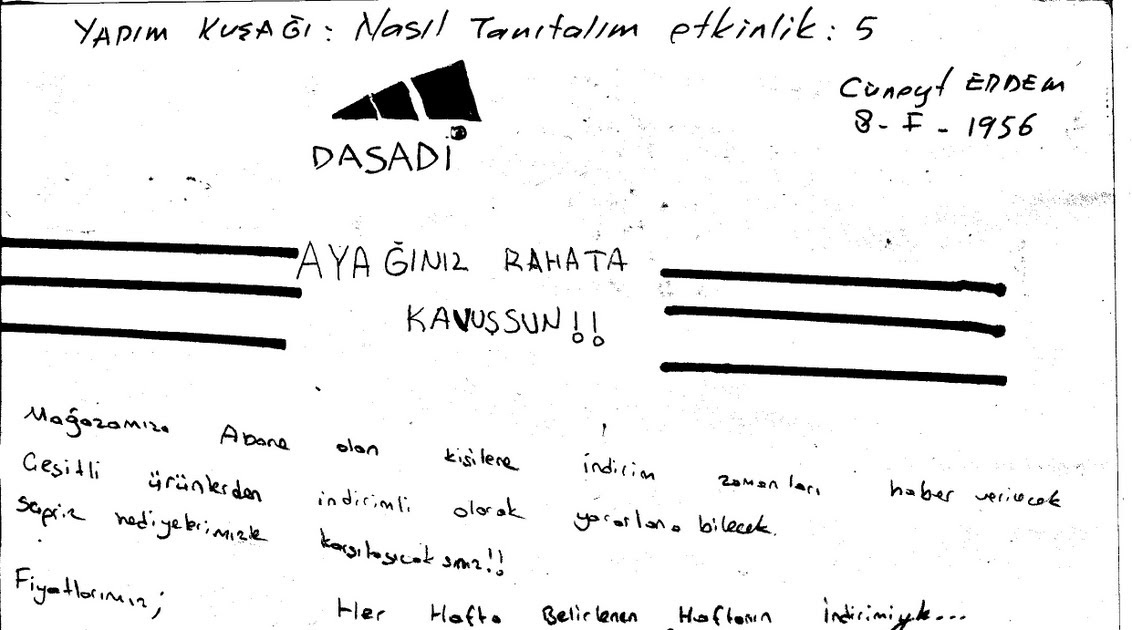 YAPIM KUŞAĞI: Nasıl Tanıtalım etkinlik: 5
Cüneyt ERDEM
8-I-1956
DASADİ
AYAĞINIZ RAHATA
KAVUŞSUN!!
Mağazamıza Abone olan kişilere indirim zamanları haber verilecek
Çeşitli ürünlerden indirimli olarak yararlana bilecek.
Süpriz hediyelerimizle karşılaşıcaksınız!!
Fiyatlarımız; Her Hafta Belirlenen Haftanın İndirimiyle...